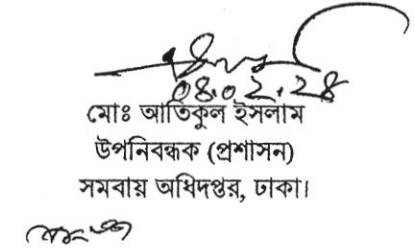 ০৪.০২.২৪
মোঃ আতিকুল ইসলাম
উপনিবন্ধক (প্রশাসন)
সমবায় অধিদপ্তর, ঢাকা।